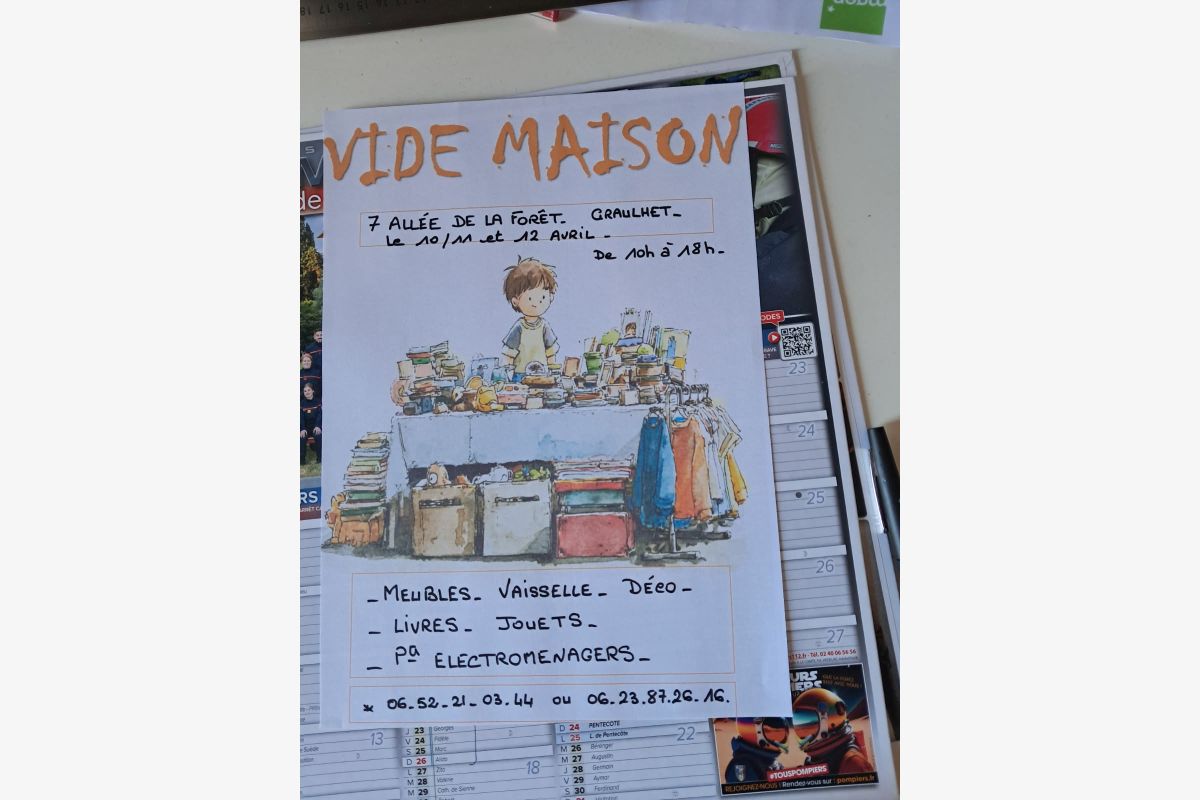 VIDE MAISON
7 ALLÉE DE LA FORÊT_ GRAULHET_
le 10/11 et 12 AVRIL_
De 10h à 18h_
_ MEUBLES_ VAISSELLE_ DÉCO_
_ LIVRES_ JOUETS_
_ Pa ELECTROMENAGERS_
* 06_52_21_03_44 ou 06_23_87_26_16.
23
24
25
26
27
13
18
22
J 23 Georges
V 24 Fidèle
S 25 Marc
D 26 Alida
L 27 Zita
M 28 Valérie
M 29 Cath. de Sienne
D 24 PENTECÔTE
L 25 L. de Pentecôte
M 26 Bérenger
M 27 Augustin
J 28 Germain
V 29 Aymar
S 30 Ferdinand
#TOUSPOMPIERS
REJOIGNEZ-NOUS ! Rendez-vous sur : pompiers.fr